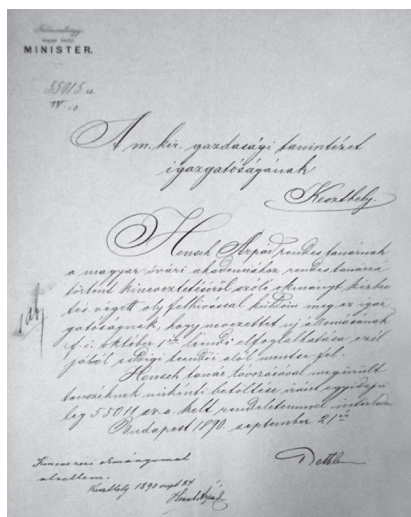 Földmívelésügyi
magyar királyi
MINISTER.
55015 sz.
IV. 10
A m. kir. gazdasági tanintézet
igazgatóságának
Keszthely.
Hensch Árpád rendes tanárnak
a magyar óvári akadémiához rendes tanárrá
történt kineveztetéséről szóló okmányt kézbesi
tés végett oly felhívással küldöm meg az igaz
gatóságnak, hogy nevezettet uj állomásának
f. é. október 1én leendő elfoglalhatása czél
jából eddigi teendői alól mentse fel.
Hensch tanár távozásával megürült
tanszéknek mikénti betöltése iránt egyidejü
leg 55011 sz. a. kelt rendeletemmel intézkedem
Budapest 1890 september 21én
Bethlen
Kinevezési okmányomat
átvettem.
Keszthely 1890 sept 24
Hensch Árpád